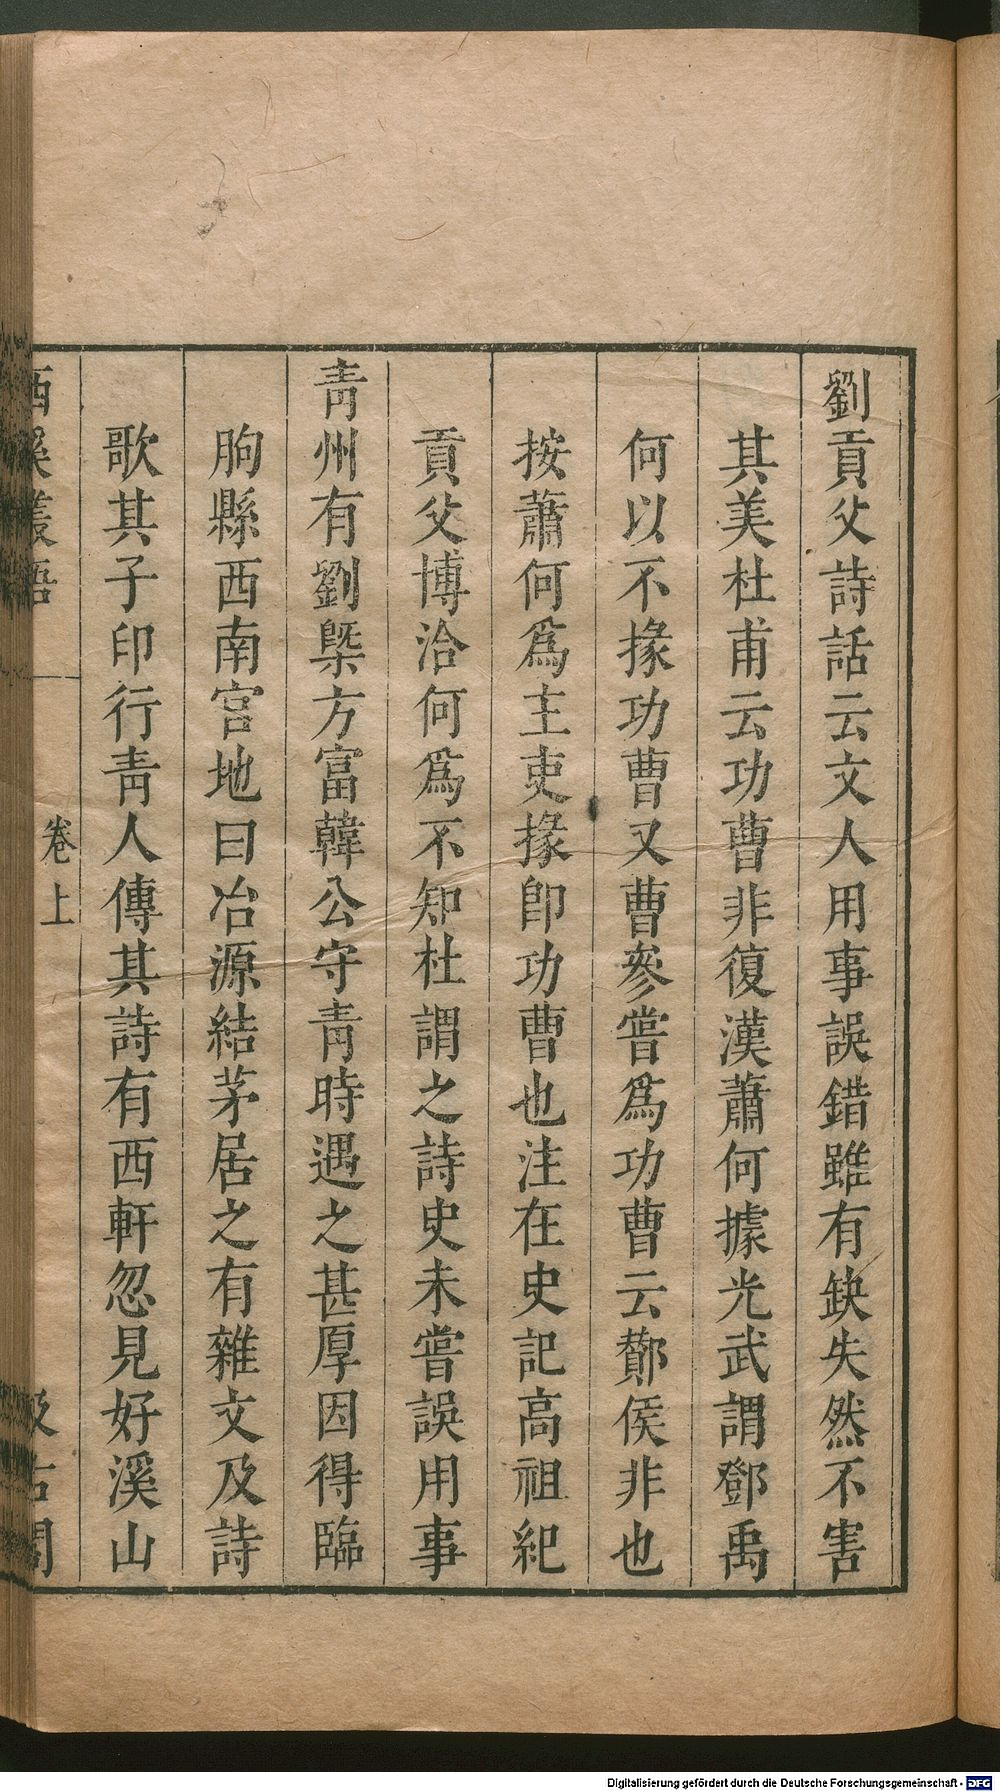 劉貢父詩話云文人用事誤錯雖有缺失然不害
其美杜甫云功曹非復漢蕭何據光武謂鄧禹
何以不掾功曹又曹參嘗爲功曹云酇侯非也
按蕭何爲主吏掾卽功曹也注在史記高祖紀
貢父博洽何爲不知杜謂之詩史未嘗誤用事
靑州有劉槩方富韓公守靑時遇之甚厚因得臨
朐縣西南宮地曰冶源結茅居之有雜文及詩
歌其子印行靑人傳其詩有西軒忽見好溪山
西溪叢語
卷上
汲古閣
Digitalisierung gefördert durch die Deutsche Forschungsgemeinschaft - DFG